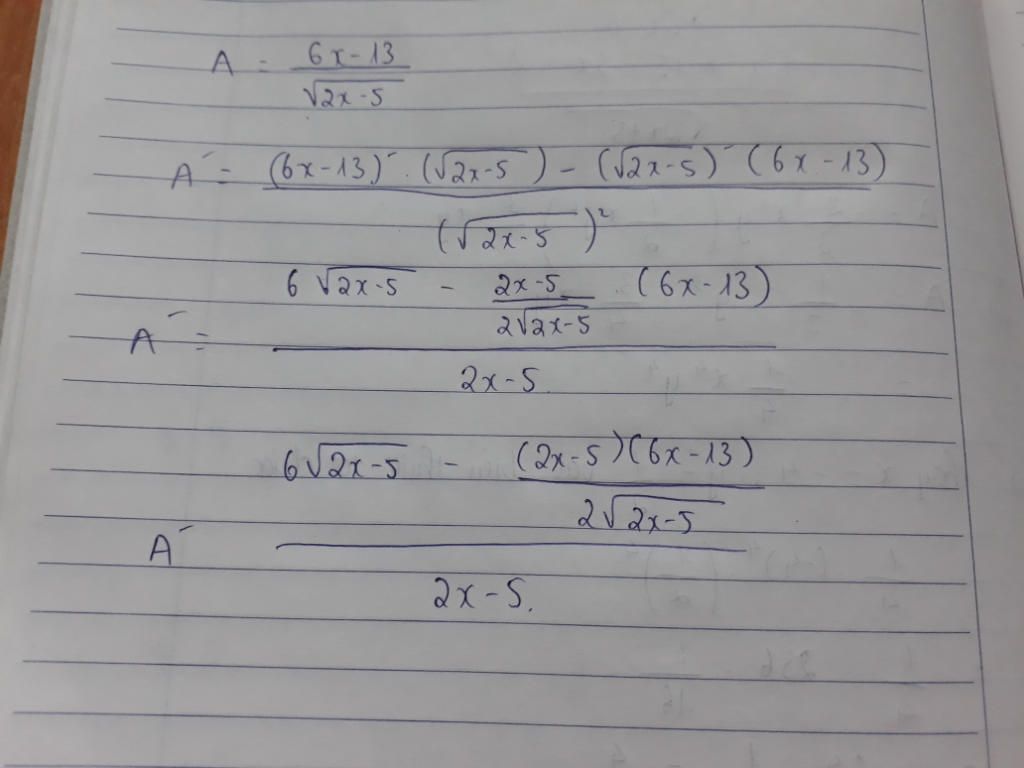 A = (6x-13) / √(2x-5)
A' = ((6x-13)' . (√(2x-5)) - (√(2x-5))' (6x-13)) / (√(2x-5))²
A' = (6√(2x-5) - (2x-5)/(2√(2x-5)) . (6x-13)) / (2x-5)
A' (6√(2x-5) - ((2x-5)(6x-13))/(2√(2x-5))) / (2x-5).